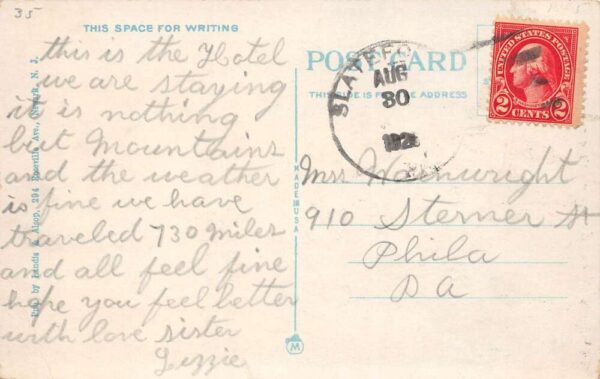 35
THIS SPACE FOR WRITING
this is the Hotel
we are staying
it is nothing
but Mountains
and the weather
is fine we have
traveled 730 miles
and all feel fine
hope you feel better
with love sister
Lizzie
Pub. by Landis & Alsop, 294 Ave., Newark, N. J.
MADE IN USA
M
POST CARD
THIS SIDE IS FOR THE ADDRESS
AUG
30
UNITED STATES POSTAGE
2 CENTS 2
Mrs Wainwright
910 Sterner St
Phila
PA